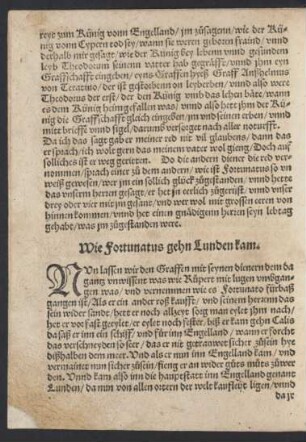 reye zum Künig vonn Engelland/ im zůsagenn/ wie der Kü-
nig vonn Cypern tod sey/ wann sie weren gebaren fraind/ vnnd
derhalb mir gesagt/ wie der Künig bey lebenn vnnd gesunden
leyb Theodorum seinenn vatter hab gegräfft/ vnnd jhm eyn
Graffschafft eingeben/ eyns Graffen hyeß Graff Anshelmus
von Teratino/ der ist gestorbenn on leyberben/ vnnd also were
Theodorus der erst/ der den Künig vmb das lehen bäte/ wann
es dem Künig heimgefallen was/ vnnd also hett jhm der Kü-
nig die Graffschafft gleich eingeben/ jm vnd seinen erben/ vnnd
mitt brieffe vnnd sigel/ darumb versorget nach aller notturfft.
Da ich das sagt gab er meiner red nit vil glaubens/ dann das
er sprach/ ich wolt gern das meinem vatter wol gieng/ Doch auff
solliches ist er weg geritten. Do die andern diener die red ver-
nommen/ sprach einer zů dem andern/ wie ist Fortunatus so vn
weiß gewesen/ wer jm ein sollich glück zůgestanden/ vnnd hette
das vnsern herren gesagt/ er het jn eerlich zůgerüst/ vnnd vnser
drey oder vier mit jm gesant/ vnd wer wol mit grossen eeren von
hinnen kommen/ vnnd het einen gnädigenn herren seyn lebtag
gehabt/ was jm zůgestanden were.
Wie Fortunatus gehn Lunden kam.
NVn lassen wir den Graffen mit seynen dienern dem da
gang vnwissent was wie Rüpert mit lugen vmbgan-
gen was/ vnd vernemmen wie es Fortunato fürbaß
gangen ist/ Als er ein ander roß kaufft/ vnd seinem herrenn das
sein wider sande/ hett er noch allzeyt sorg man eylet jhm nach/
het er vor fast geeylet/ er eylet noch fester/ biß er kam gehn Calis
da saß er inn ein schiff/ vnd für inn Engelland/ wann er forcht
das verschneyden so seer/ das er nit getrauwet sicher zůsein hye
dißhalben dem meer. Vnd als er nun inn Engelland kam/ vnd
vermainte nun sicher zůsein/ fieng er an wider gůts můts zůwer
den. Vnnd kam also inn die hauptstatt inn Engelland genant
Lunden/ da nun von allen orten der welt kaufleyt ligen/ vnnd
da jr